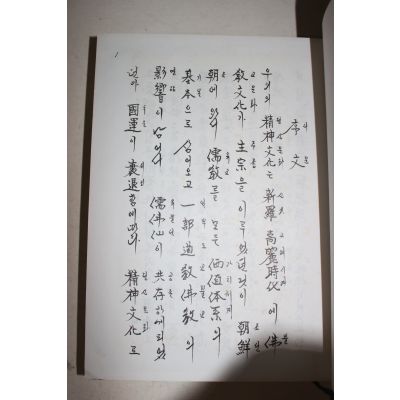 序文
우리의 精神文化는 新羅 高麗時代에 佛
敎文化가 主宗을 이루었던것이 朝鮮
朝에 있어 儒敎를 모든 価値体系의
基本으로 삼어오고 一部 道敎 佛敎의
影響이 남어서 儒佛仙이 共存하여
國運이 衰退함에따라 精神文化도